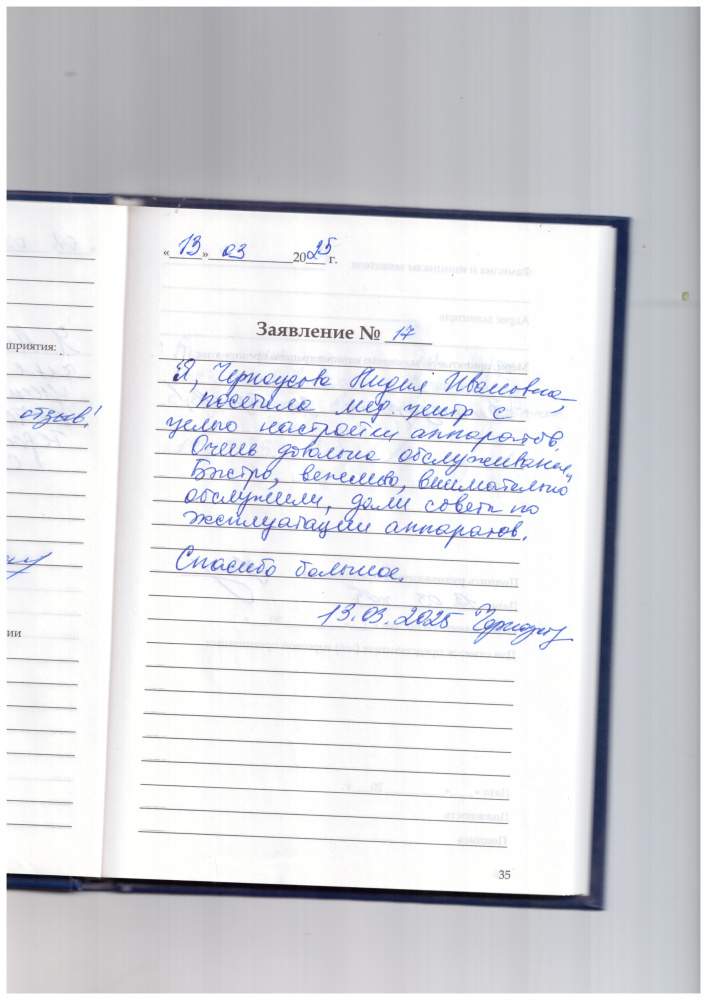 «13» 03 2025 г.
Заявление № 17
Я, Черноусова Лидия Ивановна,
посетила мед. центр с
целью настройки аппаратов.
Очень довольна обслуживанием.
Быстро, вежливо, внимательно
обслужили, дали советы по
эксплуатации аппаратов.
Спасибо большое.
13.03.2025
35
дприятия:
отзыв!
ии